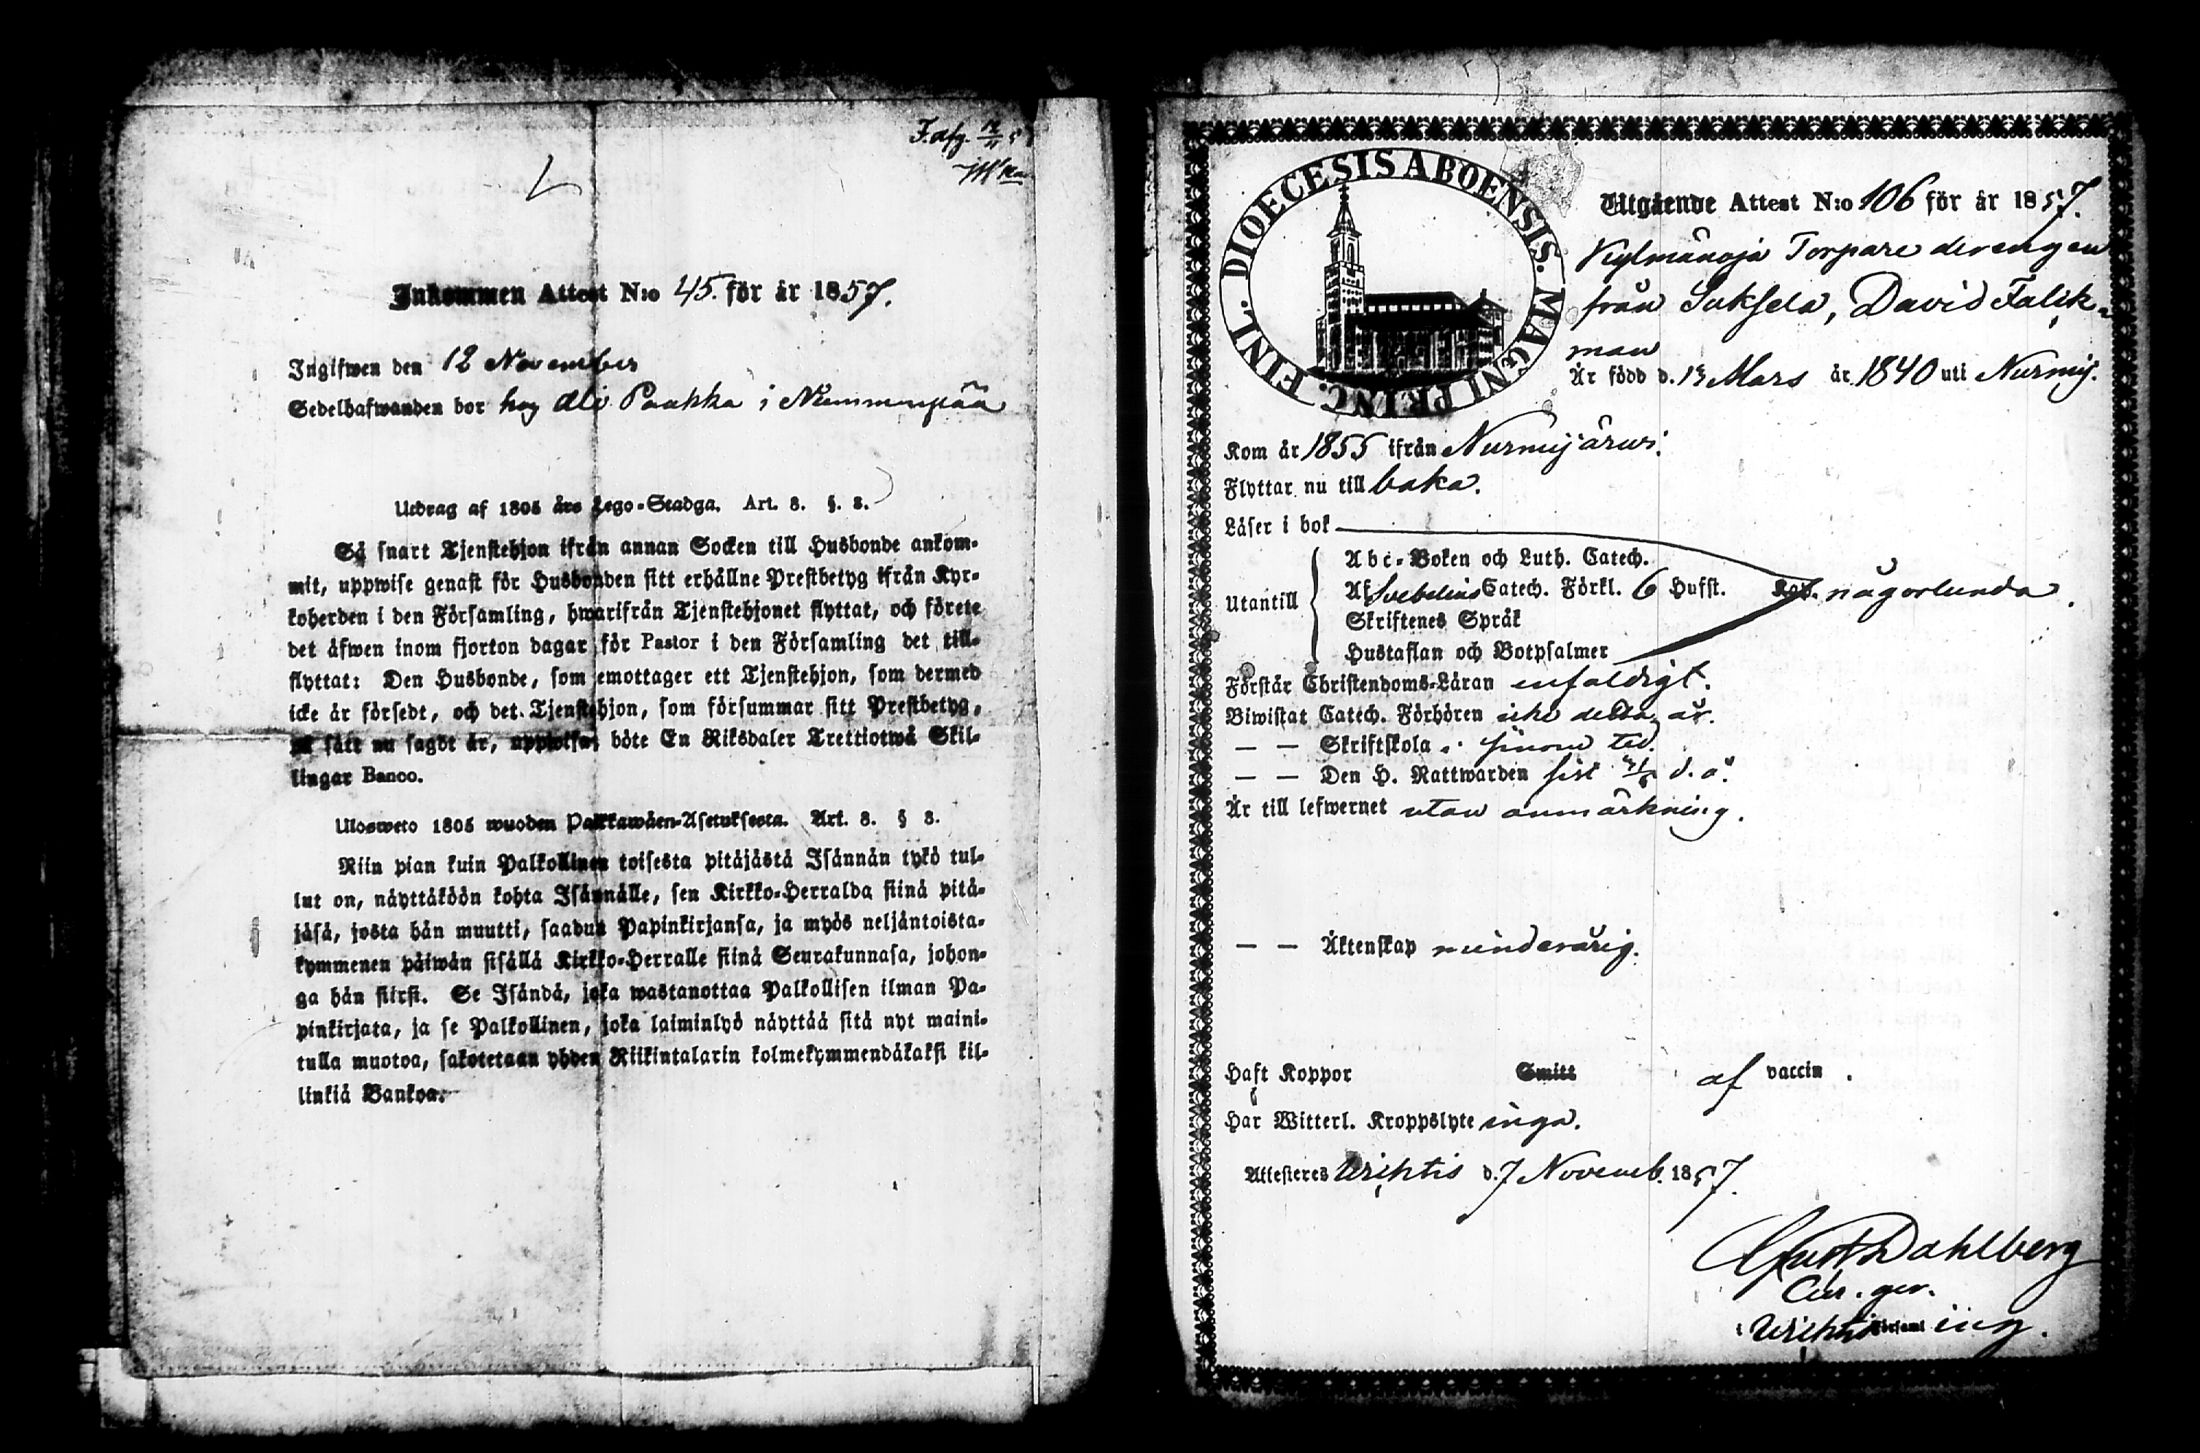 F. afg. 12/11 5
Inkommen Attest N:o 45. för år 1857.
Ingifwen den 12 November
Sedelhafwanden bor hos Ali Paakka i Nummenpää
Utdrag af 1805 års Lego-Stadga. Art. 8. §. 8.
Så snart Tjenstehjon ifrån annan Socken till Husbonde ankom-
mit, uppwise genast för Husbonden sitt erhållne Prestbetyg ifrån Kyr-
koherden i den Församling, hwarifrån Tjenstehjonet flyttat, och förete
det äfwen inom fjorton dagar för Pastor i den Församling det till-
flyttat: Den Husbonde, som emottager ett Tjenstehjon, som dermed
icke är försedt, och det Tjenstehjon, som försummar sitt Prestbetyg,
på sätt nu sagdt är, uppwisa, böte En Riksdaler Trettiotwå Skil-
lingar Banco.
Ulosweto 1805 wuoden Palkkawäen-Asetuksesta. Art. 8. § 8.
Niin pian kuin Palkollinen toisesta pitäjästä Isännän tykö tul-
lut on, näyttäköön kohta Isännälle, sen Kirkko-Herralda siinä pitä-
jäsä, josta hän muutti, saadun Papinkirjansa, ja myös neljäntoista-
kymmenen päiwän sisällä Kirkko-Herralle siinä Seurakunnasa, johon-
ga hän siirsi. Se Isändä, joka wastanottaa Palkollisen ilman Pa-
pinkirjata, ja se Palkollinen, joka laiminlyö näyttää sitä nyt maini-
tulla muotoa, sakotetaan yhden Riikintalarin kolmekymmendäkaksi kil-
linkiä Bankoa.
DIOECESIS ABOENSIS. MAGNI PRINC. FINL.
Utgående Attest N:o 106 för år 1857.
Kylmänoja Torpare drengen
från Suksela, David Falck-
man
Är född d. 13 Mars år 1840 uti Nurmij.
Kom år 1855 ifrån Nurmijärwi.
Flyttar nu till baka.
Läser i bok
Abc-Boken och Luth. Catech.
Utantill Af Svebelius Catech. Förkl. 6 Hufst. någorlunda.
Skriftenes Språk
Hustaflan och Botpsalmer
Förstår Christendoms-Läran enfaldigt.
Biwistat Catech. Förhören icke detta år.
— — Skriftskola i sinom tid.
— — Den H. Nattwarden sist d. å.
Är till lefwernet utan anmärkning.
— — Äktenskap minderårig.
Haft Koppor Smitt af vaccin.
Har Witterl. Kroppslyte inga.
Attesteres Wichtis d. 7 Novemb. 1857.
Gust Dahlberg
Cur. ger.
i Wichtis Församl ing.